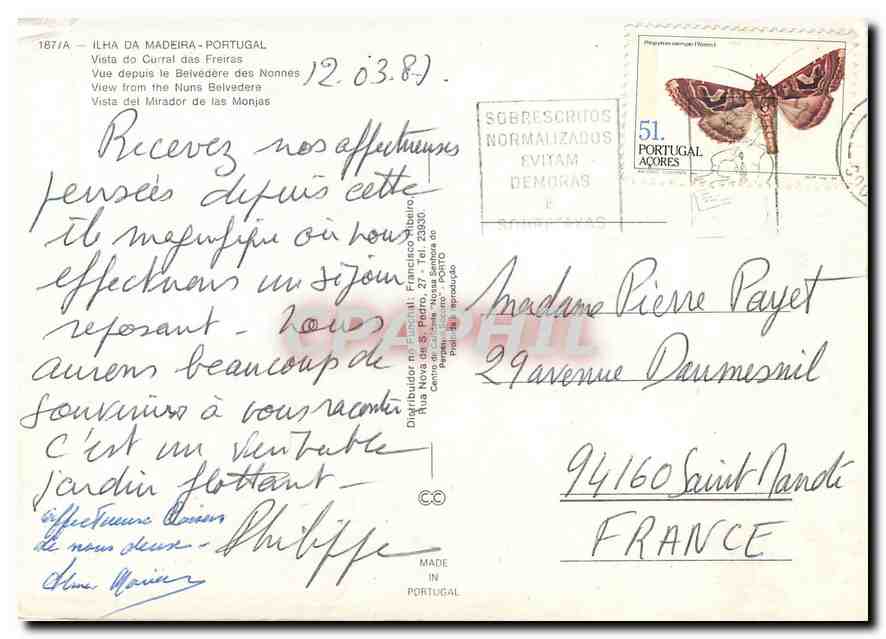 187/A — ILHA DA MADEIRA - PORTUGAL
Vista do Curral das Freiras
Vue depuis le Belvédère des Nonnes
View from the Nuns Belvedere
Vista del Mirador de las Monjas
12.03.87.
Recevez nos affectueuses
pensées depuis cette
île magnifique où nous
effectuons un séjour
reposant - nous
aurons beaucoup de
souvenirs à vous raconter
C'est un véritable
jardin flottant -
Philippe
affectueux baisers
de nous deux -
Distribuidor no Funchal: Francisco Ribeiro,
Rua Nova de S. Pedro, 27 - Tel. 23930.
Centro de Caridade "Nossa Senhora do
Perpétuo Socorro" - PORTO
Proibida a reprodução
CPAPHIL
CC
MADE
IN
PORTUGAL
SOBRESCRITOS
NORMALIZADOS
EVITAM
DEMORAS
E
SOBRETAXAS
51.
PORTUGAL
AÇORES
Madame Pierre Payet
29 avenue Daumesnil
94160 Saint Mandé
FRANCE